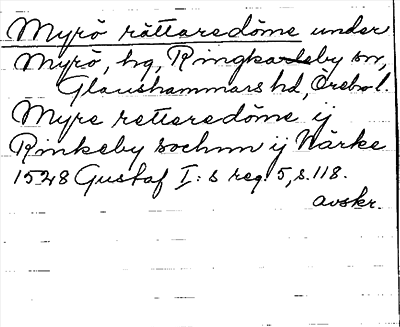 Myrö rättaredöme under
Myrö, hg, Ringkarleby sn,
Glanshammars hd, Örebro l.
Myre retteredöme ij
Rinkeby sochnn ij Närke
1528 Gustaf I:s reg. 5, s. 118.
avskr.